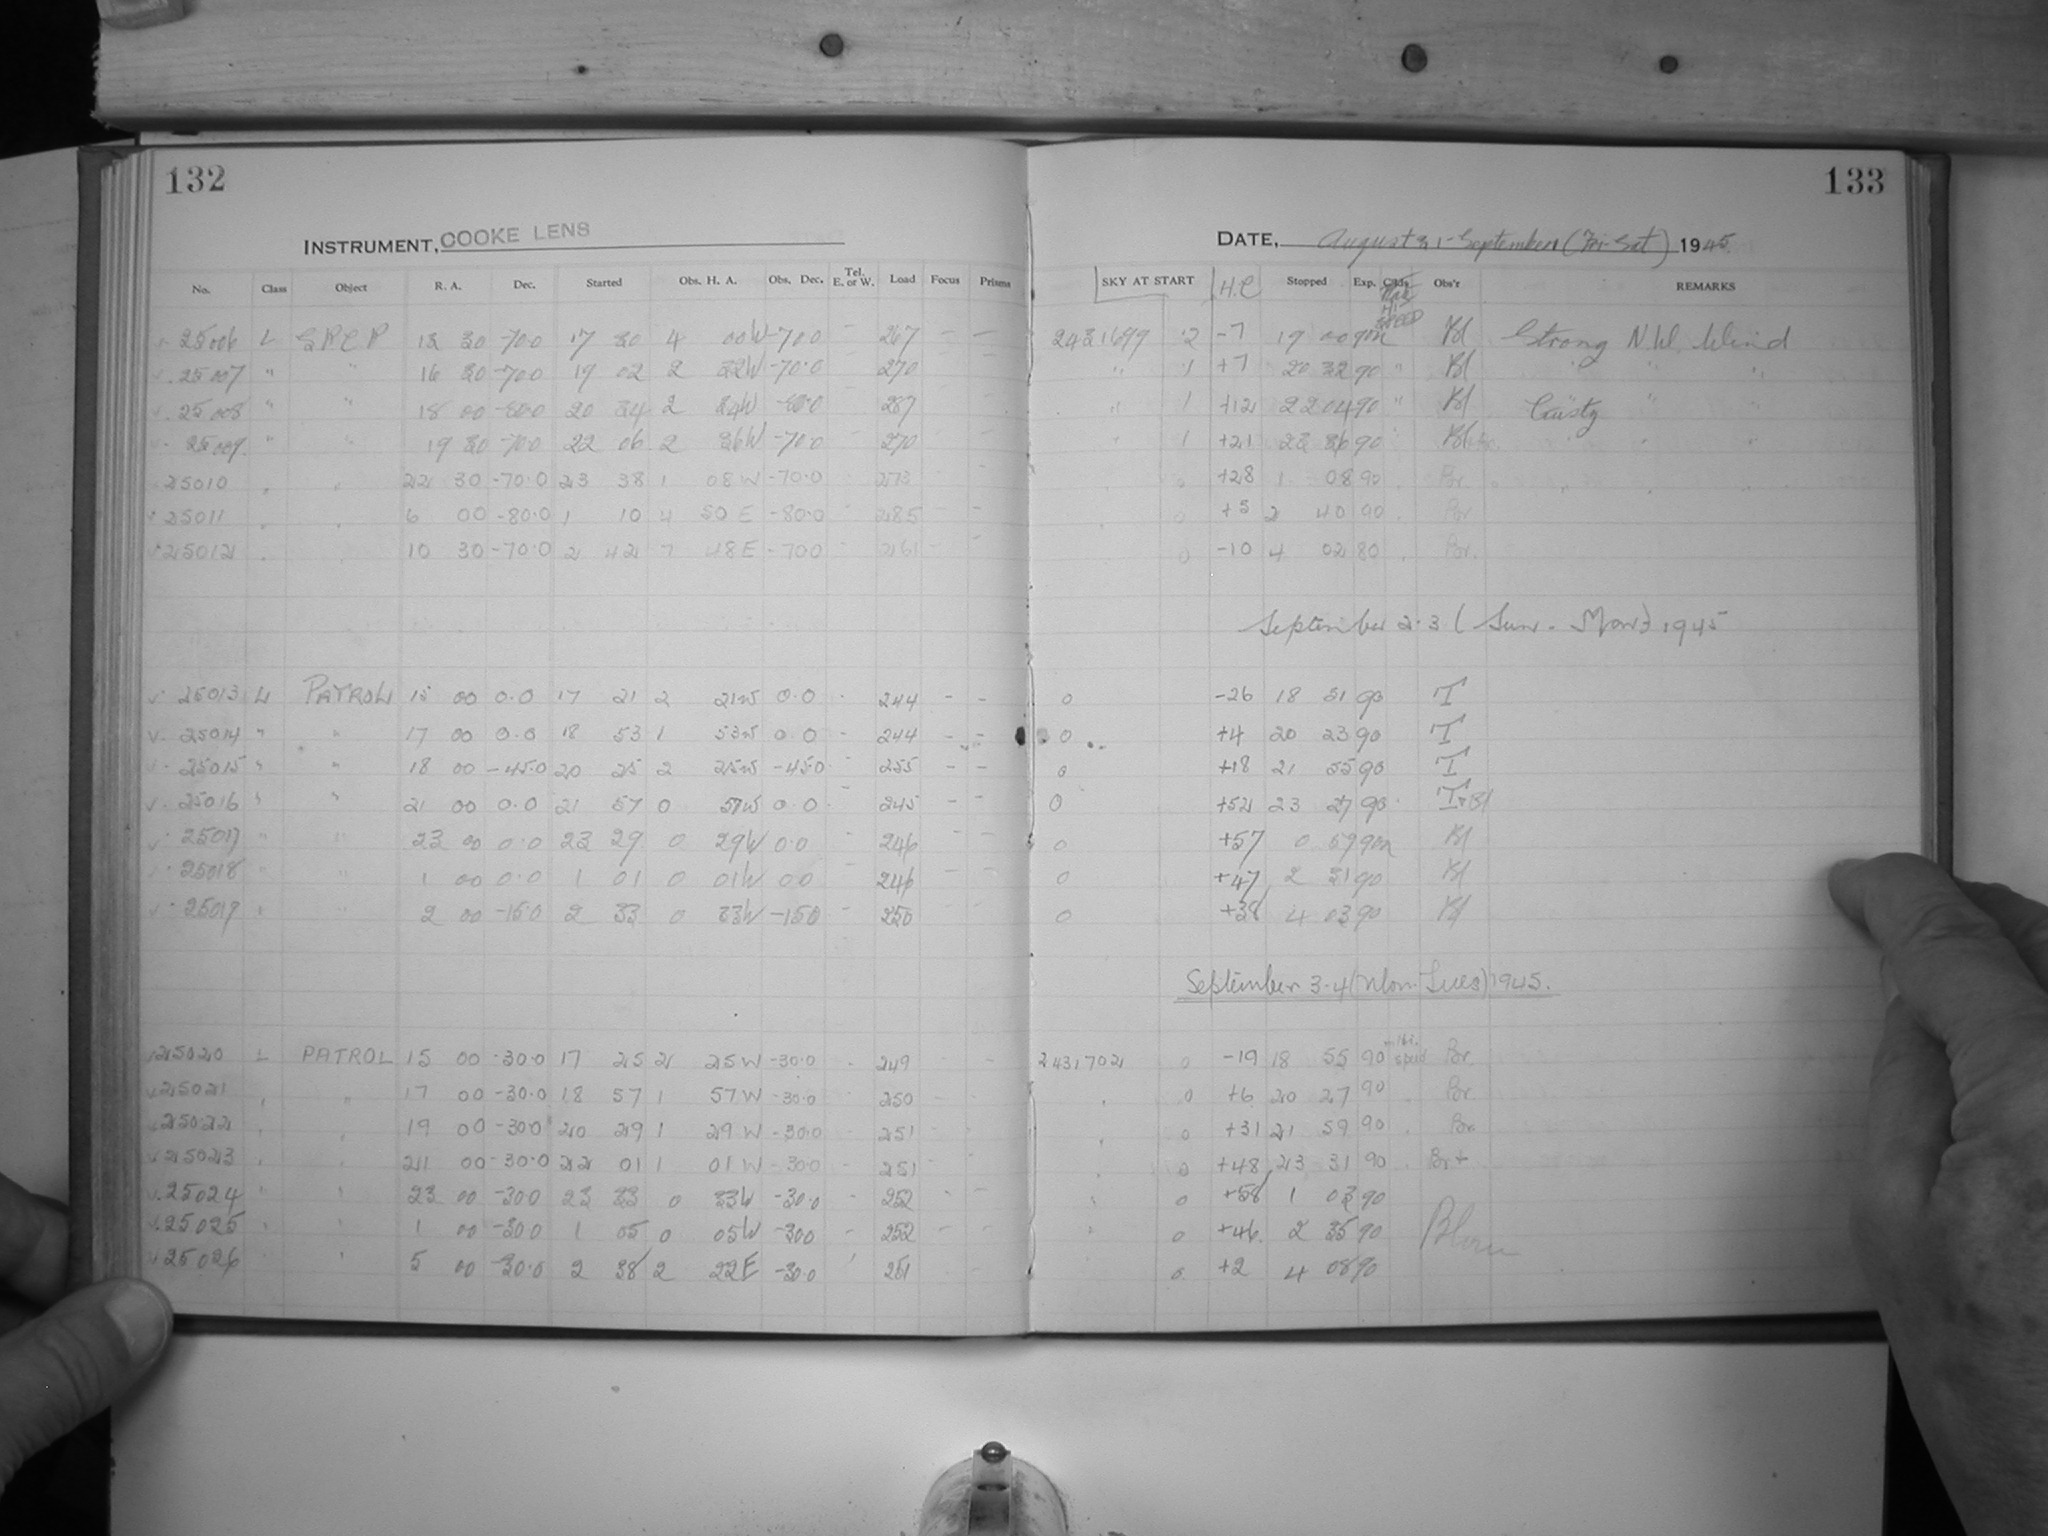 132
INSTRUMENT, COOKE LENS
No. Class Object R. A. Dec. Started Obs. H. A. Obs. Dec. Tel. E. or W. Load Focus Prisms
25006 L 13 30 -70.0 17 30 4 00W -70.0 - 267 - -
25007 " " 16 30 -70.0 19 02 2 32W -70.0 - 270 - -
25008 " " 18 00 -80.0 20 34 2 34W -80.0 - 287 - -
25009 " " 19 30 -70.0 22 06 2 36W -70.0 - 270 - -
25010 " " 22 30 -70.0 23 38 1 08W -70.0 - 273 - -
25011 " " 6 00 -80.0 1 10 4 50E -80.0 - 285 - -
25012 " " 10 30 -70.0 2 42 7 48E -70.0 - 261 - -
25013 L PATROL 15 00 0.0 17 21 2 21W 0.0 - 244 - -
25014 " " 17 00 0.0 18 53 1 53W 0.0 - 244 - -
25015 " " 18 00 -45.0 20 25 2 25W -45.0 - 255 - -
25016 " " 21 00 0.0 21 57 0 57W 0.0 - 245 - -
25017 " " 23 00 0.0 23 29 0 29W 0.0 - 246 - -
25018 " " 1 00 0.0 1 01 0 01W 0.0 - 246 - -
25019 " " 2 00 -15.0 2 33 0 33W -15.0 - 250 - -
25020 L PATROL 15 00 -30.0 17 25 2 25W -30.0 - 249 - -
25021 " " 17 00 -30.0 18 57 1 57W -30.0 - 250 - -
25022 " " 19 00 -30.0 20 29 1 29W -30.0 - 251 - -
25023 " " 21 00 -30.0 22 01 1 01W -30.0 - 251 - -
25024 " " 23 00 -30.0 23 33 0 33W -30.0 - 252 - -
25025 " " 1 00 -30.0 1 05 0 05W -30.0 - 252 - -
25026 " " 5 00 -30.0 2 38 2 22E -30.0 - 251 - -
133
DATE, August 31 - September 1 (Fri-Sat) 1945
SKY AT START H.C Stopped Exp. Obs'r REMARKS
HI SPEED
2431699 2 -7 19 00 90m Bl Strong N.W. Wind
" 1 +7 20 32 90 " Bl " " "
" 1 +12 22 04 90 " Bl Gusty " "
" 1 +21 23 36 90 " "
0 +28 1 08 90 Br. " " "
0 +5 2 40 90 Br.
0 -10 4 02 80 Br.
September 2-3 (Sun - Mon) 1945
0 -26 18 51 90 T
0 +4 20 23 90 T
0 +18 21 55 90 T
0 +52 23 27 90 T+Bl
0 +57 0 59 90m Bl
0 +47 2 31 90 Bl
0 +38 4 03 90 Bl
September 3-4 (Mon-Tues) 1945.
2431702 0 -19 18 55 90 hi. speed Br.
" 0 +6 20 27 90 " Br.
" 0 +31 21 59 90 " Br
" 0 +48 23 31 90 Br +
" 0 +58 1 03 90
" 0 +46 2 35 90
0 +2 4 08 90